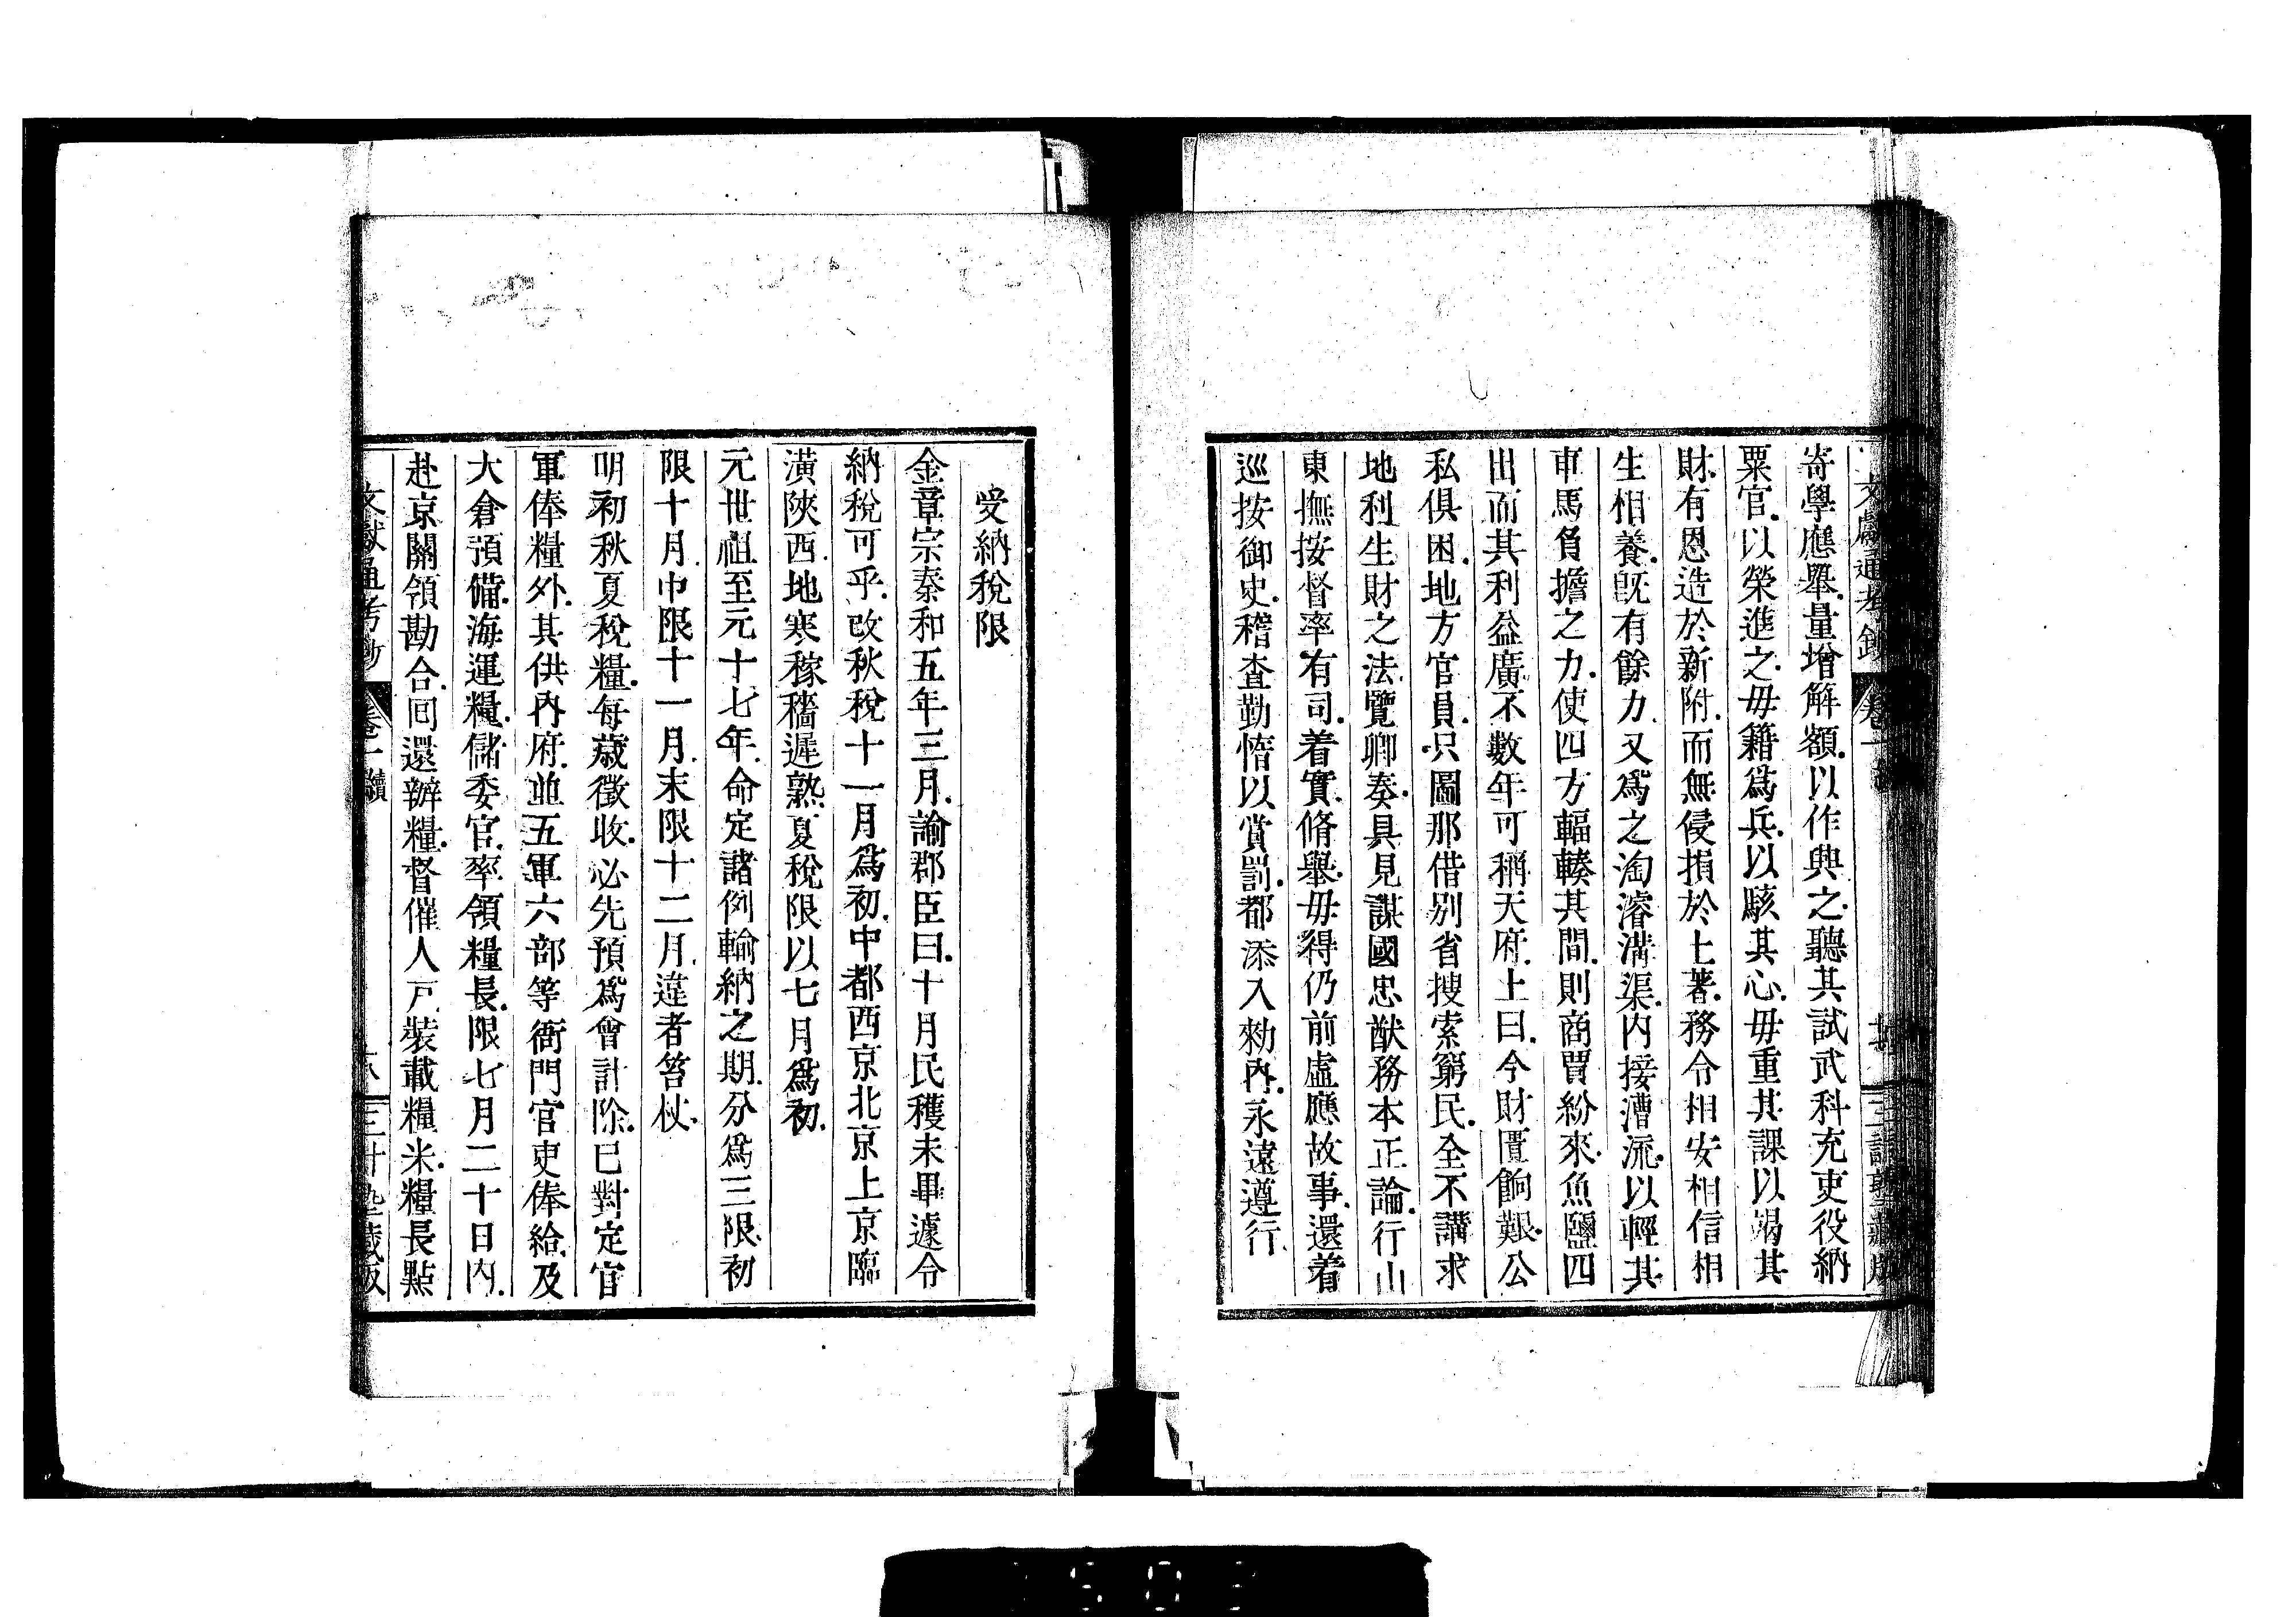 寄學應舉量增解額以作興之聽其試武科充吏役納
粟官以榮進之毋籍爲兵以駭其心毋重其課以竭其
財有恩造於新附而無侵損於土著務令相安相信相
生相養旣有餘力又爲之淘濬溝渠內接漕流以輕其
車馬負擔之力使四方輻輳其間則商賈紛來魚鹽四
出而其利益廣不數年可稱天府上曰今財匱餉艱公
私俱困地方官員只圖那借别省搜索窮民全不講求
地利生財之法覽卿奏具見謀國忠猷務本正論行山
東撫按督率有司着實脩舉毋得仍前虛應故事還着
巡按御史稽查勤惰以賞罰都添入勑內永遠遵行
受納稅限
金章宗秦和五年三月諭郡臣曰十月民穫未畢遽令
納稅可乎改秋稅十一月爲初中都西京北京上京臨
潢陝西地寒稼穡遲熟夏稅限以七月爲初
元世祖至元十七年命定諸例輸納之期分爲三限初
限十月中限十一月末限十二月違者笞杖
明初秋夏稅糧每歲徵收必先預爲會計除已對定官
軍俸糧外其供內府並五軍六部等衙門官吏俸給及
大倉預備海運糧儲委官率領糧長限七月二十日內
赴京關領勘合回還辦糧督催人戸裝載糧米糧長點